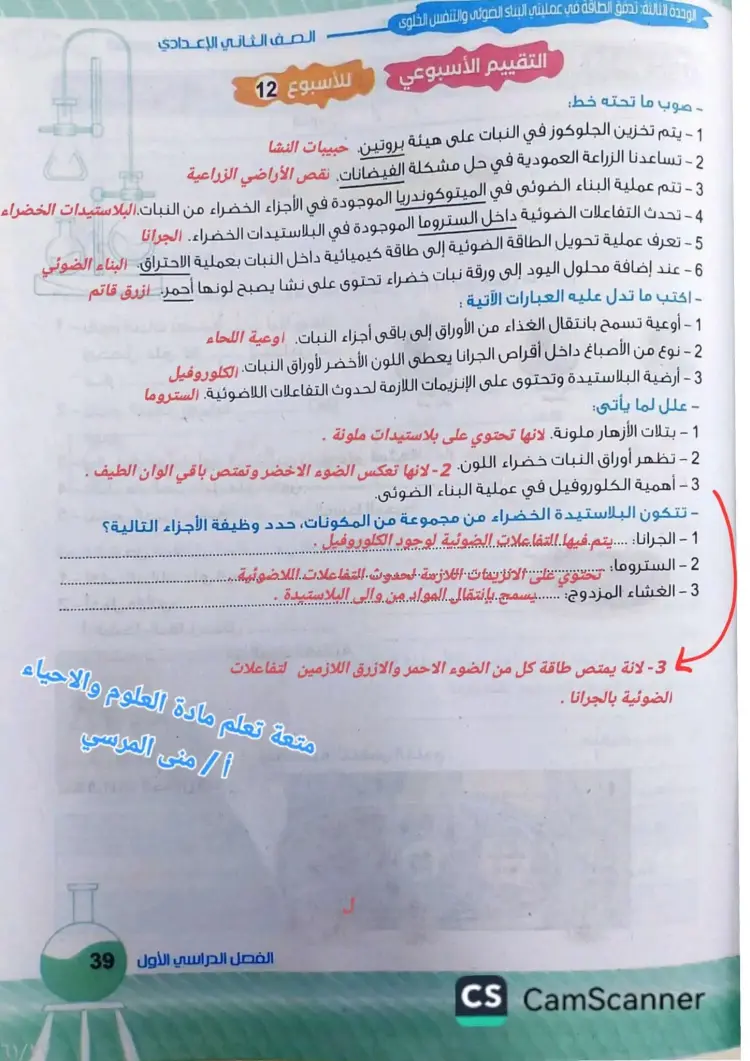 الوحدة الثالثة: تدفق الطاقة في عمليتي البناء الضوئي والتنفس الخلوي
الصف الثاني الإعدادي
التقييم الأسبوعي للأسبوع 12
- صوب ما تحته خط:
1 - يتم تخزين الجلوكوز في النبات على هيئة بروتين. حبيبات النشا
2 - تساعدنا الزراعة العمودية في حل مشكلة الفيضانات. نقص الأراضي الزراعية
3 - تتم عملية البناء الضوئي في الميتوكوندريا الموجودة في الأجزاء الخضراء من النبات. البلاستيدات الخضراء
4 - تحدث التفاعلات الضوئية داخل الستروما الموجودة في البلاستيدات الخضراء. الجرانا
5 - تعرف عملية تحويل الطاقة الضوئية إلى طاقة كيميائية داخل النبات بعملية الاحتراق. البناء الضوئي
6 - عند إضافة محلول اليود إلى ورقة نبات خضراء تحتوي على نشا يصبح لونها أحمر. ازرق قاتم
- اكتب ما تدل عليه العبارات الآتية :
1 - أوعية تسمح بانتقال الغذاء من الأوراق إلى باقي أجزاء النبات. اوعية اللحاء
2 - نوع من الأصباغ داخل أقراص الجرانا يعطى اللون الأخضر لأوراق النبات. الكلوروفيل
3 - أرضية البلاستيدة وتحتوى على الإنزيمات اللازمة لحدوث التفاعلات اللاضوئية. الستروما
- علل لما يأتى:
1 - بتلات الأزهار ملونة. لانها تحتوي على بلاستيدات ملونة .
2 - تظهر أوراق النبات خضراء اللون. 2- لانها تعكس الضوء الاخضر وتمتص باقي الوان الطيف .
3 - أهمية الكلوروفيل في عملية البناء الضوئي.
- تتكون البلاستيدة الخضراء من مجموعة من المكونات، حدد وظيفة الأجزاء التالية؟
1 - الجرانا: يتم فيها التفاعلات الضوئية لوجود الكلوروفيل .
2 - الستروما: تحتوي على الانزيمات اللازمة لحدوث التفاعلات اللاضوئية .
3 - الغشاء المزدوج: يسمح بإنتقال المواد من والى البلاستيدة .
3- لانة يمتص طاقة كل من الضوء الاحمر والازرق اللازمين لتفاعلات
الضوئية بالجرانا .
متعة تعلم مادة العلوم والاحياء
أ / منى المرسي
ل
الفصل الدراسي الأول
39
CS CamScanner